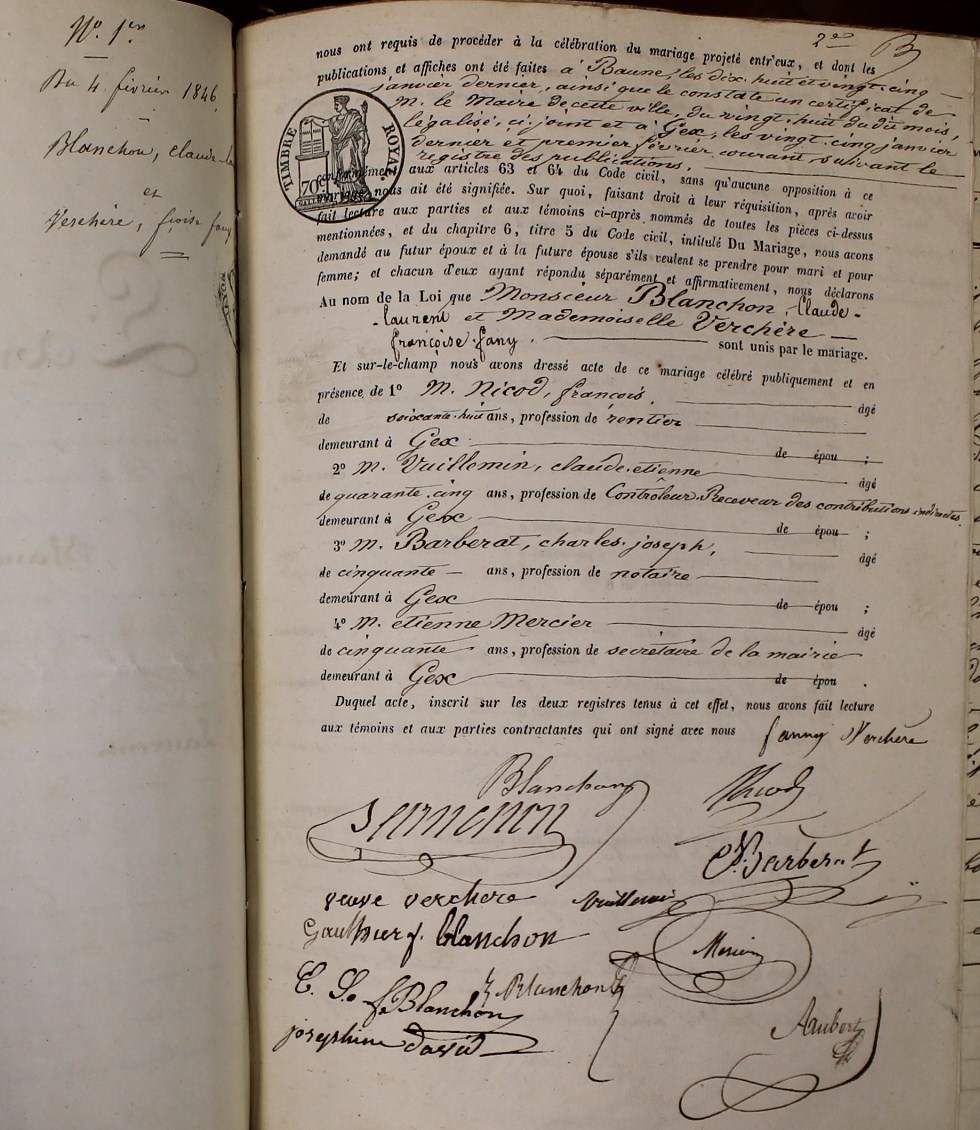 No. 1er
Du 4. février 1846
Blanchon, claude-
et
Verchère, fçoise fany
2e
nous ont requis de procéder à la célébration du mariage projeté entr'eux, et dont les
publications et affiches ont été faites à Baune, les dix-huit et vingt-cinq
janvier dernier, ainsi que le constate un certificat de
M. le Maire de cette ville, du vingt-huit du dit mois,
légalisé, ci-joint et à Gex, les vingt-cinq janvier
dernier et premier février courant, suivant le
registre des publications,
TIMBRE ROYAL
70c
conformément aux articles 63 et 64 du Code civil, sans qu'aucune opposition à ce
mariage nous ait été signifiée. Sur quoi, faisant droit à leur réquisition, après avoir
fait lecture aux parties et aux témoins ci-après nommés de toutes les pièces ci-dessus
mentionnées, et du chapitre 6, titre 5 du Code civil, intitulé Du Mariage, nous avons
demandé au futur époux et à la future épouse s'ils veulent se prendre pour mari et pour
femme; et chacun d'eux ayant répondu séparément et affirmativement, nous déclarons
Au nom de la Loi que Monsieur Blanchon, Claude-
-laurent et Mademoiselle Verchère
françoise-fany. sont unis par le mariage.
Et sur-le-champ nous avons dressé acte de ce mariage célébré publiquement et en
présence de 1º M. Nicod, françois. âgé
de soixante-huit ans, profession de rentier
demeurant à Gex de épou ;
2º M. Vuillemin, claude-etienne âgé
de quarante-cinq ans, profession de Contrôleur-Receveur des contributions indirectes,
demeurant à Gex de épou ;
3º M. Barberat, charles-joseph, âgé
de cinquante ans, profession de notaire
demeurant à Gex de épou ;
4º M. etienne Mercier âgé
de cinquante ans, profession de secrétaire de la mairie
demeurant à Gex de épou .
Duquel acte, inscrit sur les deux registres tenus à cet effet, nous avons fait lecture
aux témoins et aux parties contractantes qui ont signé avec nous fanny Verchère
Blanchon Nicod
Barberat
veuve verchere Vuillemin
Gauthier f. blanchon Mercier
f. Blanchon Blanchon
josephine david